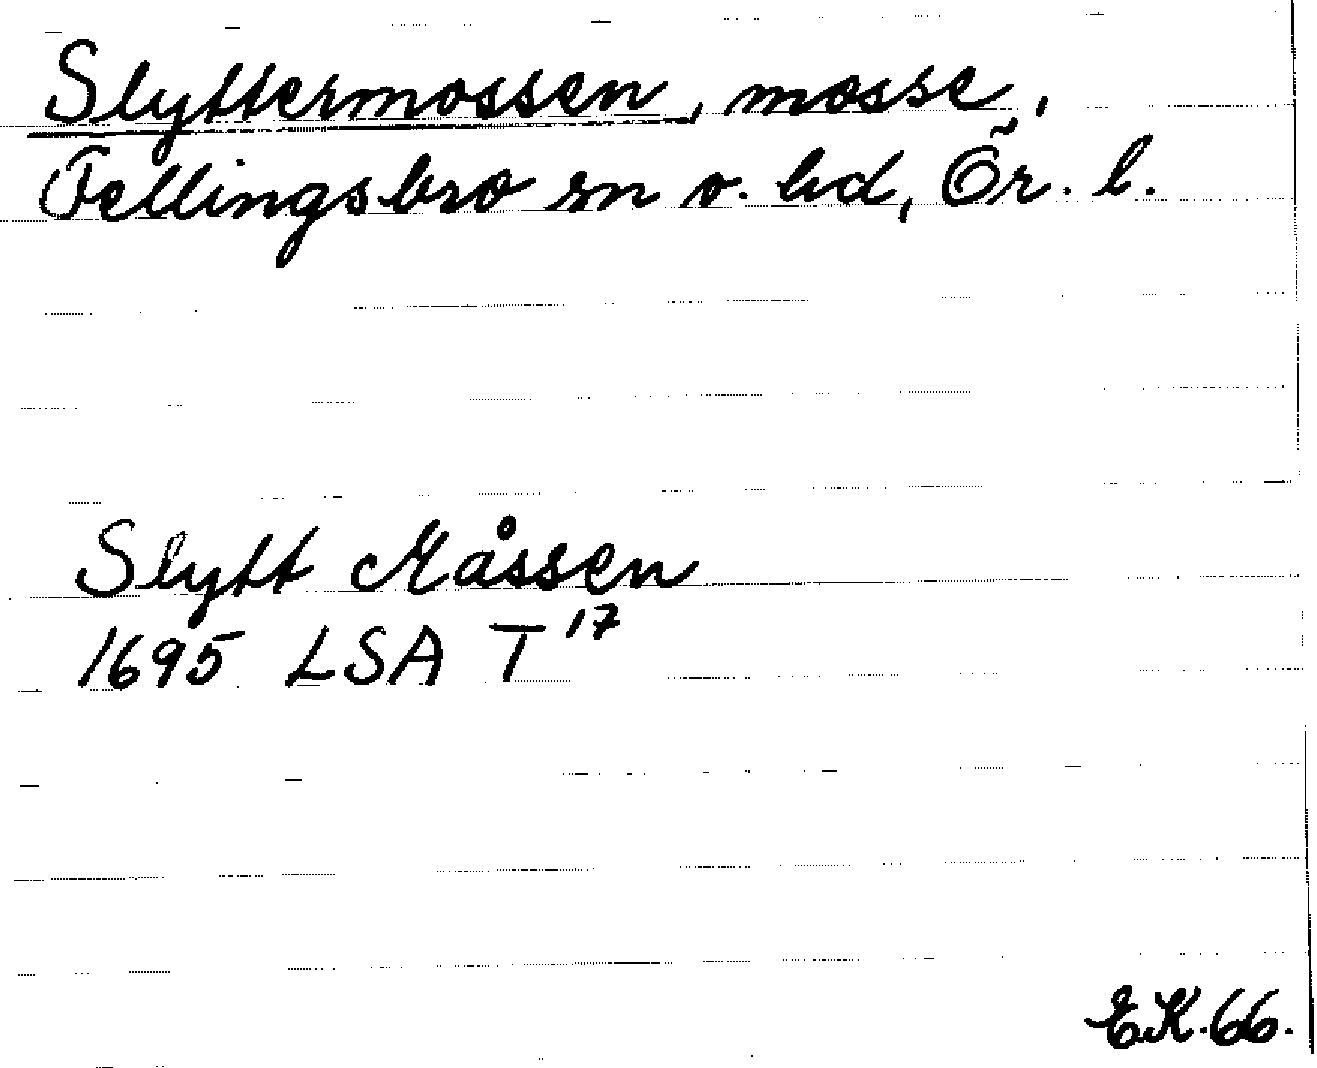 Slyttermossen, mosse,
Fellingsbro sn o. hd, Ör. l.
Slytt Måssen
1695 LSA T 17
EK.66.